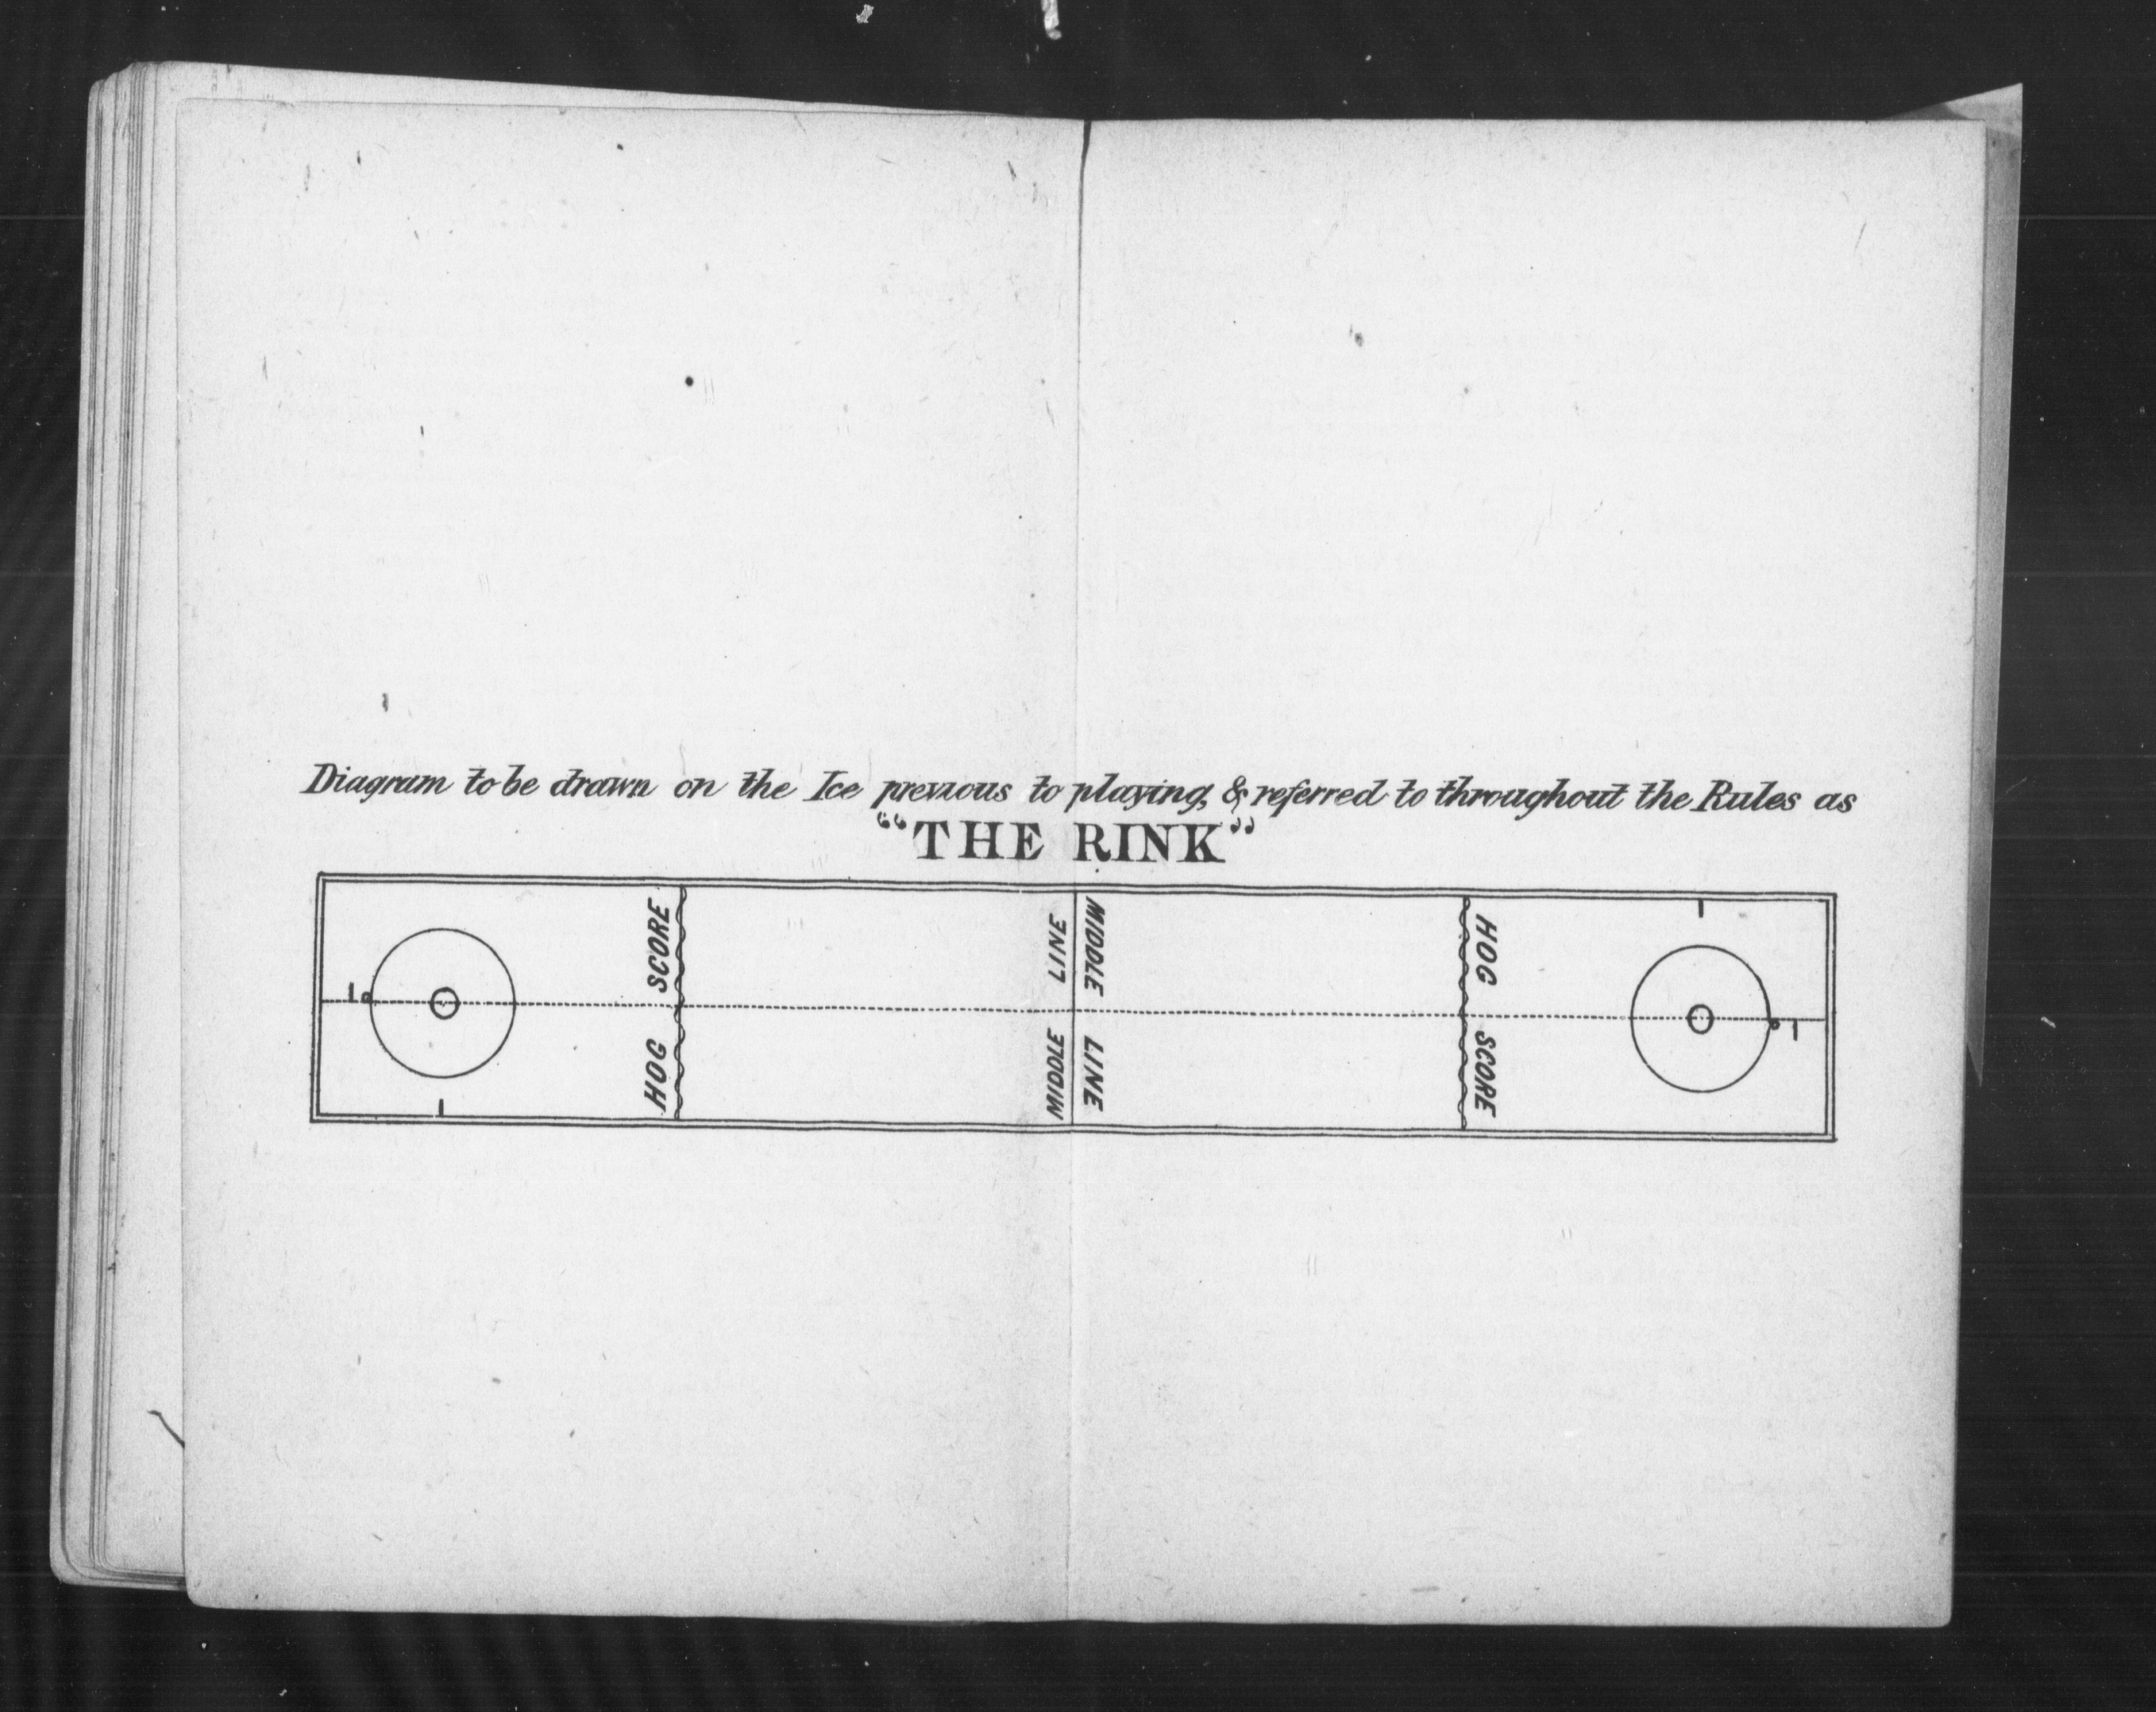 Diagram to be drawn on the Ice previous to playing, & referred to throughout the Rules as
“THE RINK”
HOG SCORE
MIDDLE LINE
MIDDLE LINE
HOG SCORE